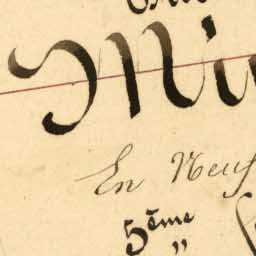 Mi
En Neuf
5ème
"